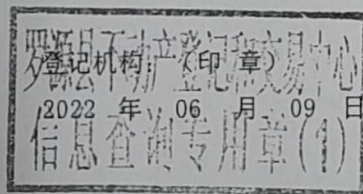 罗源县不动产登记和交易中心
登记机构：（印 章）
2022 年 06 月 09 日
信息查询专用章(1)